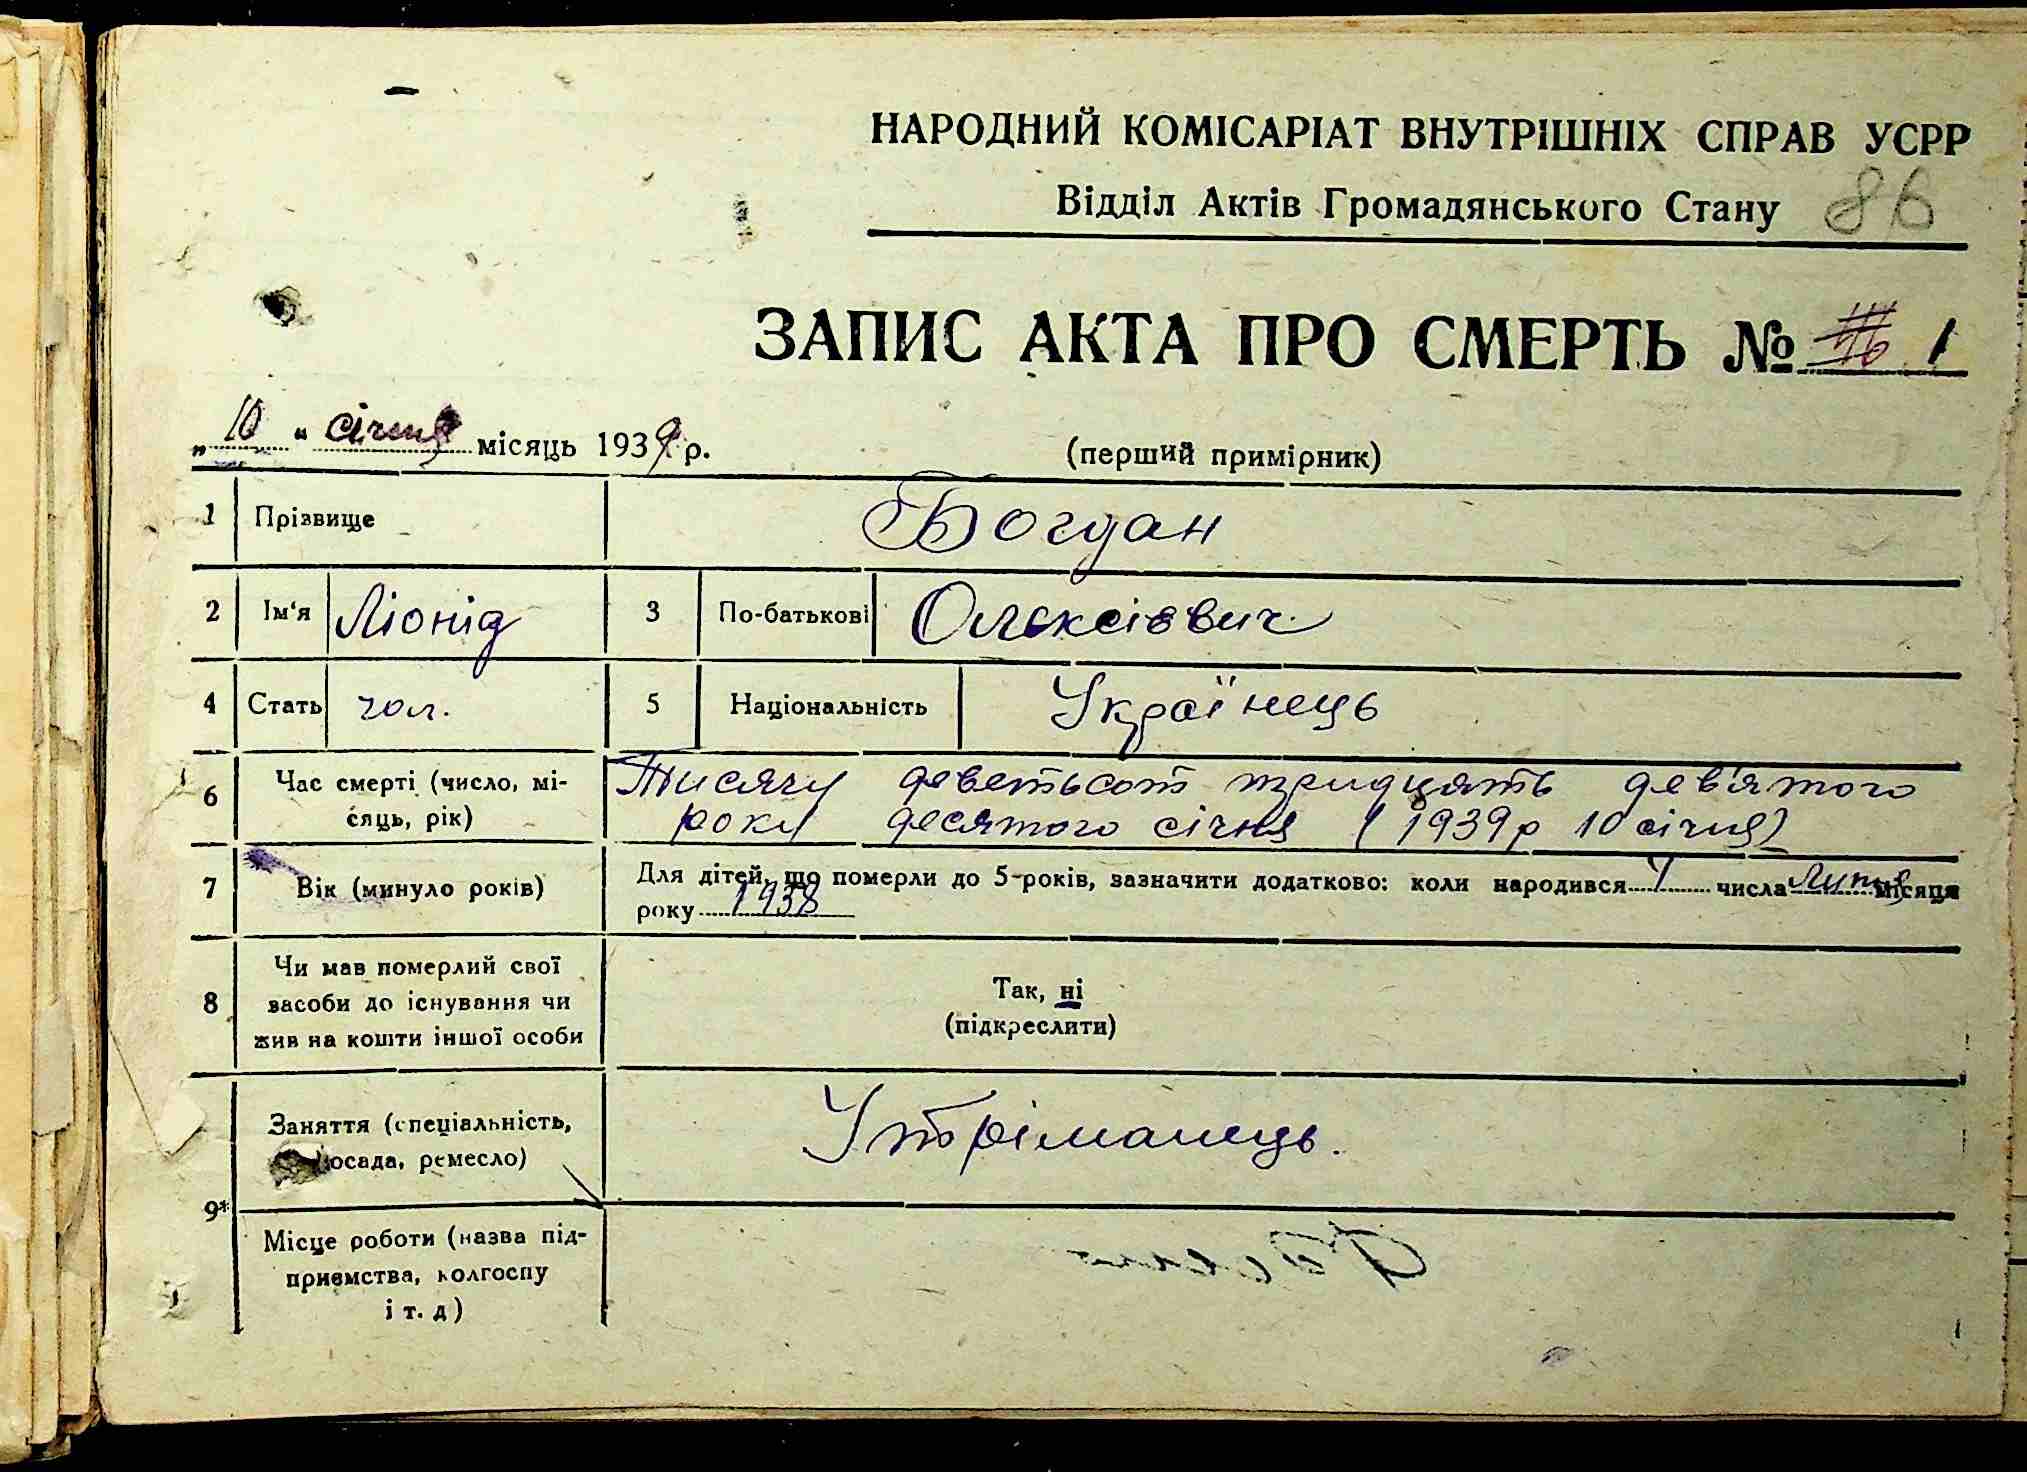 НАРОДНИЙ КОМІСАРІАТ ВНУТРІШНІХ СПРАВ УСРР
Відділ Актів Громадянського Стану 86
ЗАПИС АКТА ПРО СМЕРТЬ № 1
„10“ січня місяць 1939 р.
(перший примірник)
1 Прізвище Богдан
2 Ім'я Ліонід 3 По-батькові Олексієвич
4 Стать чол. 5 Національність Українець
6 Час смерті (число, мі-
сяць, рік)
Тисячу деветьсот тридцять дев'ятого
року десятого січня (1939 р 10 січня)
7 Вік (минуло років)
Для дітей, що померли до 5-років, зазначити додатково: коли народився числа місяця
року 1938
8 Чи мав померлий свої
засоби до існування чи
жив на кошти іншої особи
Так, ні
(підкреслити)
9*
Заняття (спеціальність,
посада, ремесло)
Утріманець.
Місце роботи (назва під-
приємства, колгоспу
і т. д)